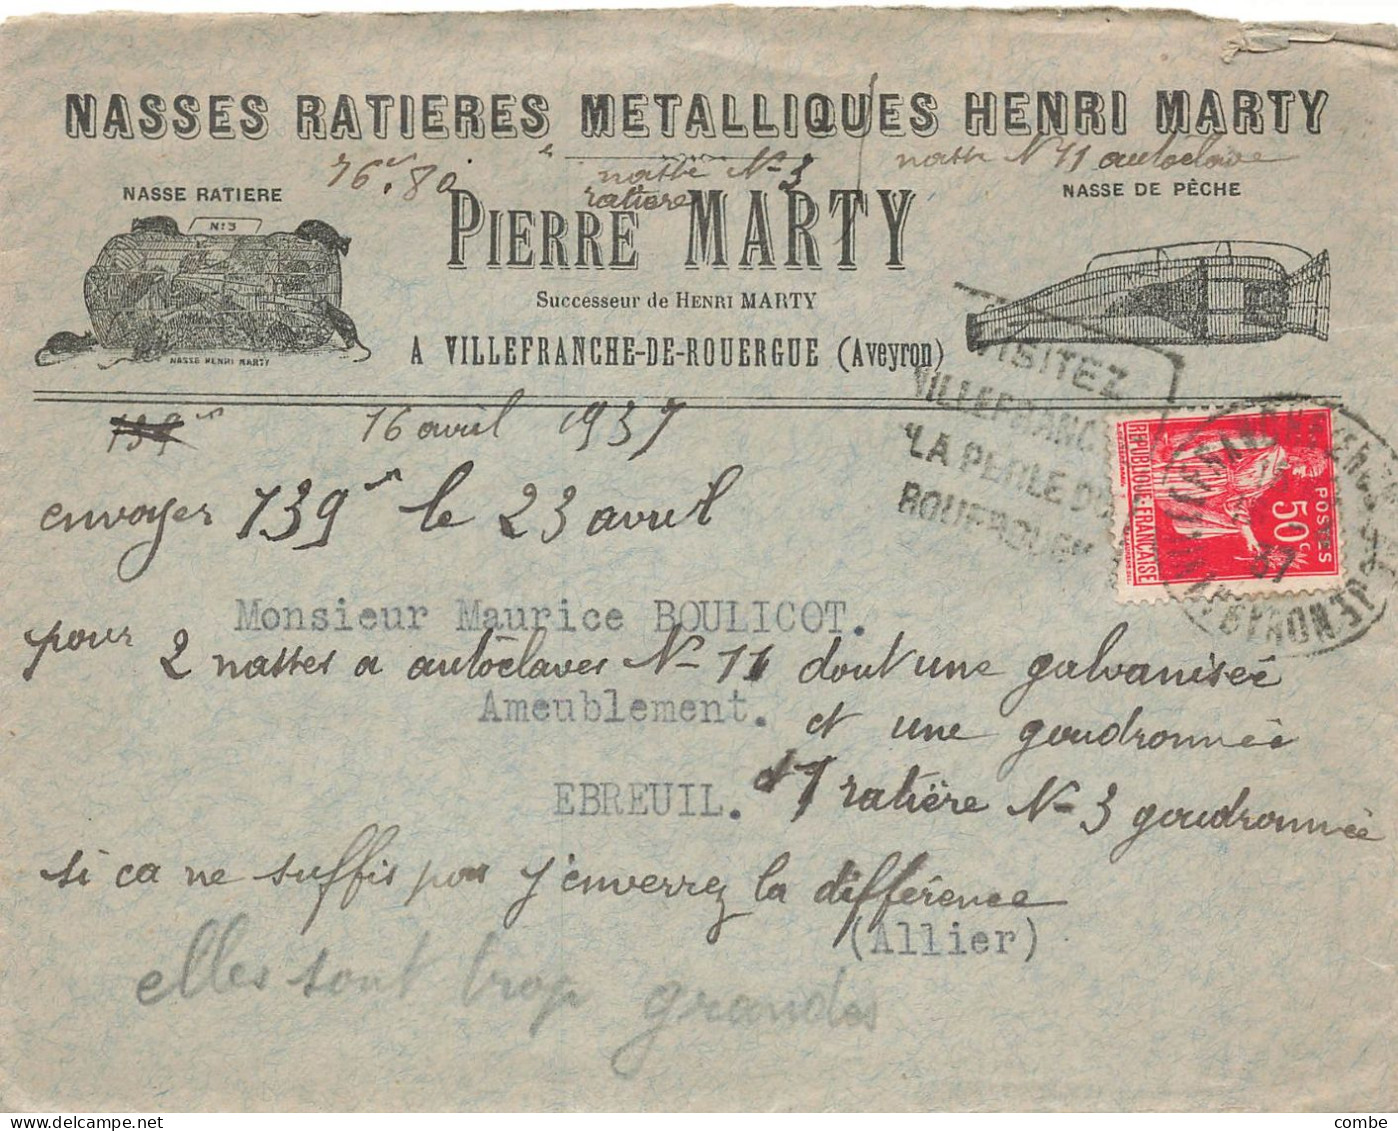 NASSES RATIERES METALLIQUES HENRI MARTY
76 frs. 80
nasse N-3
ratiere
nasse N 11 autoclave
NASSE RATIERE
NASSE DE PÊCHE
Nº3
NASSE HENRI MARTY
PIERRE MARTY
Successeur de HENRI MARTY
A VILLEFRANCHE-DE-ROUERGUE (Aveyron)
VISITEZ
VILLEFRANCHE
"LA PERLE DU
ROUERGUE"
REPUBLIQUE-FRANÇAISE
POSTES
50c
37
AVEYRON
16 avril 1937
envoyer 139 frs le 23 avril
Monsieur Maurice BOULICOT.
pour 2 nasses a autoclaves N-11 dont une galvanisée
Ameublement.
et une goudronnée
EBREUIL.
et 1 ratière N-3 goudronnée
si ca ne suffis pas j'enverrez la différence
(Allier)
elles sont trop grandes
combe